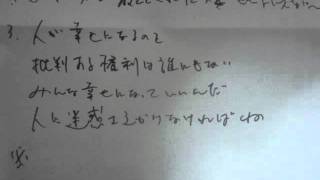 3. 人が幸せになるのを
批判ある権利は誰にもない
みんな幸せになっていいんだ
人に迷惑さえかけなければね